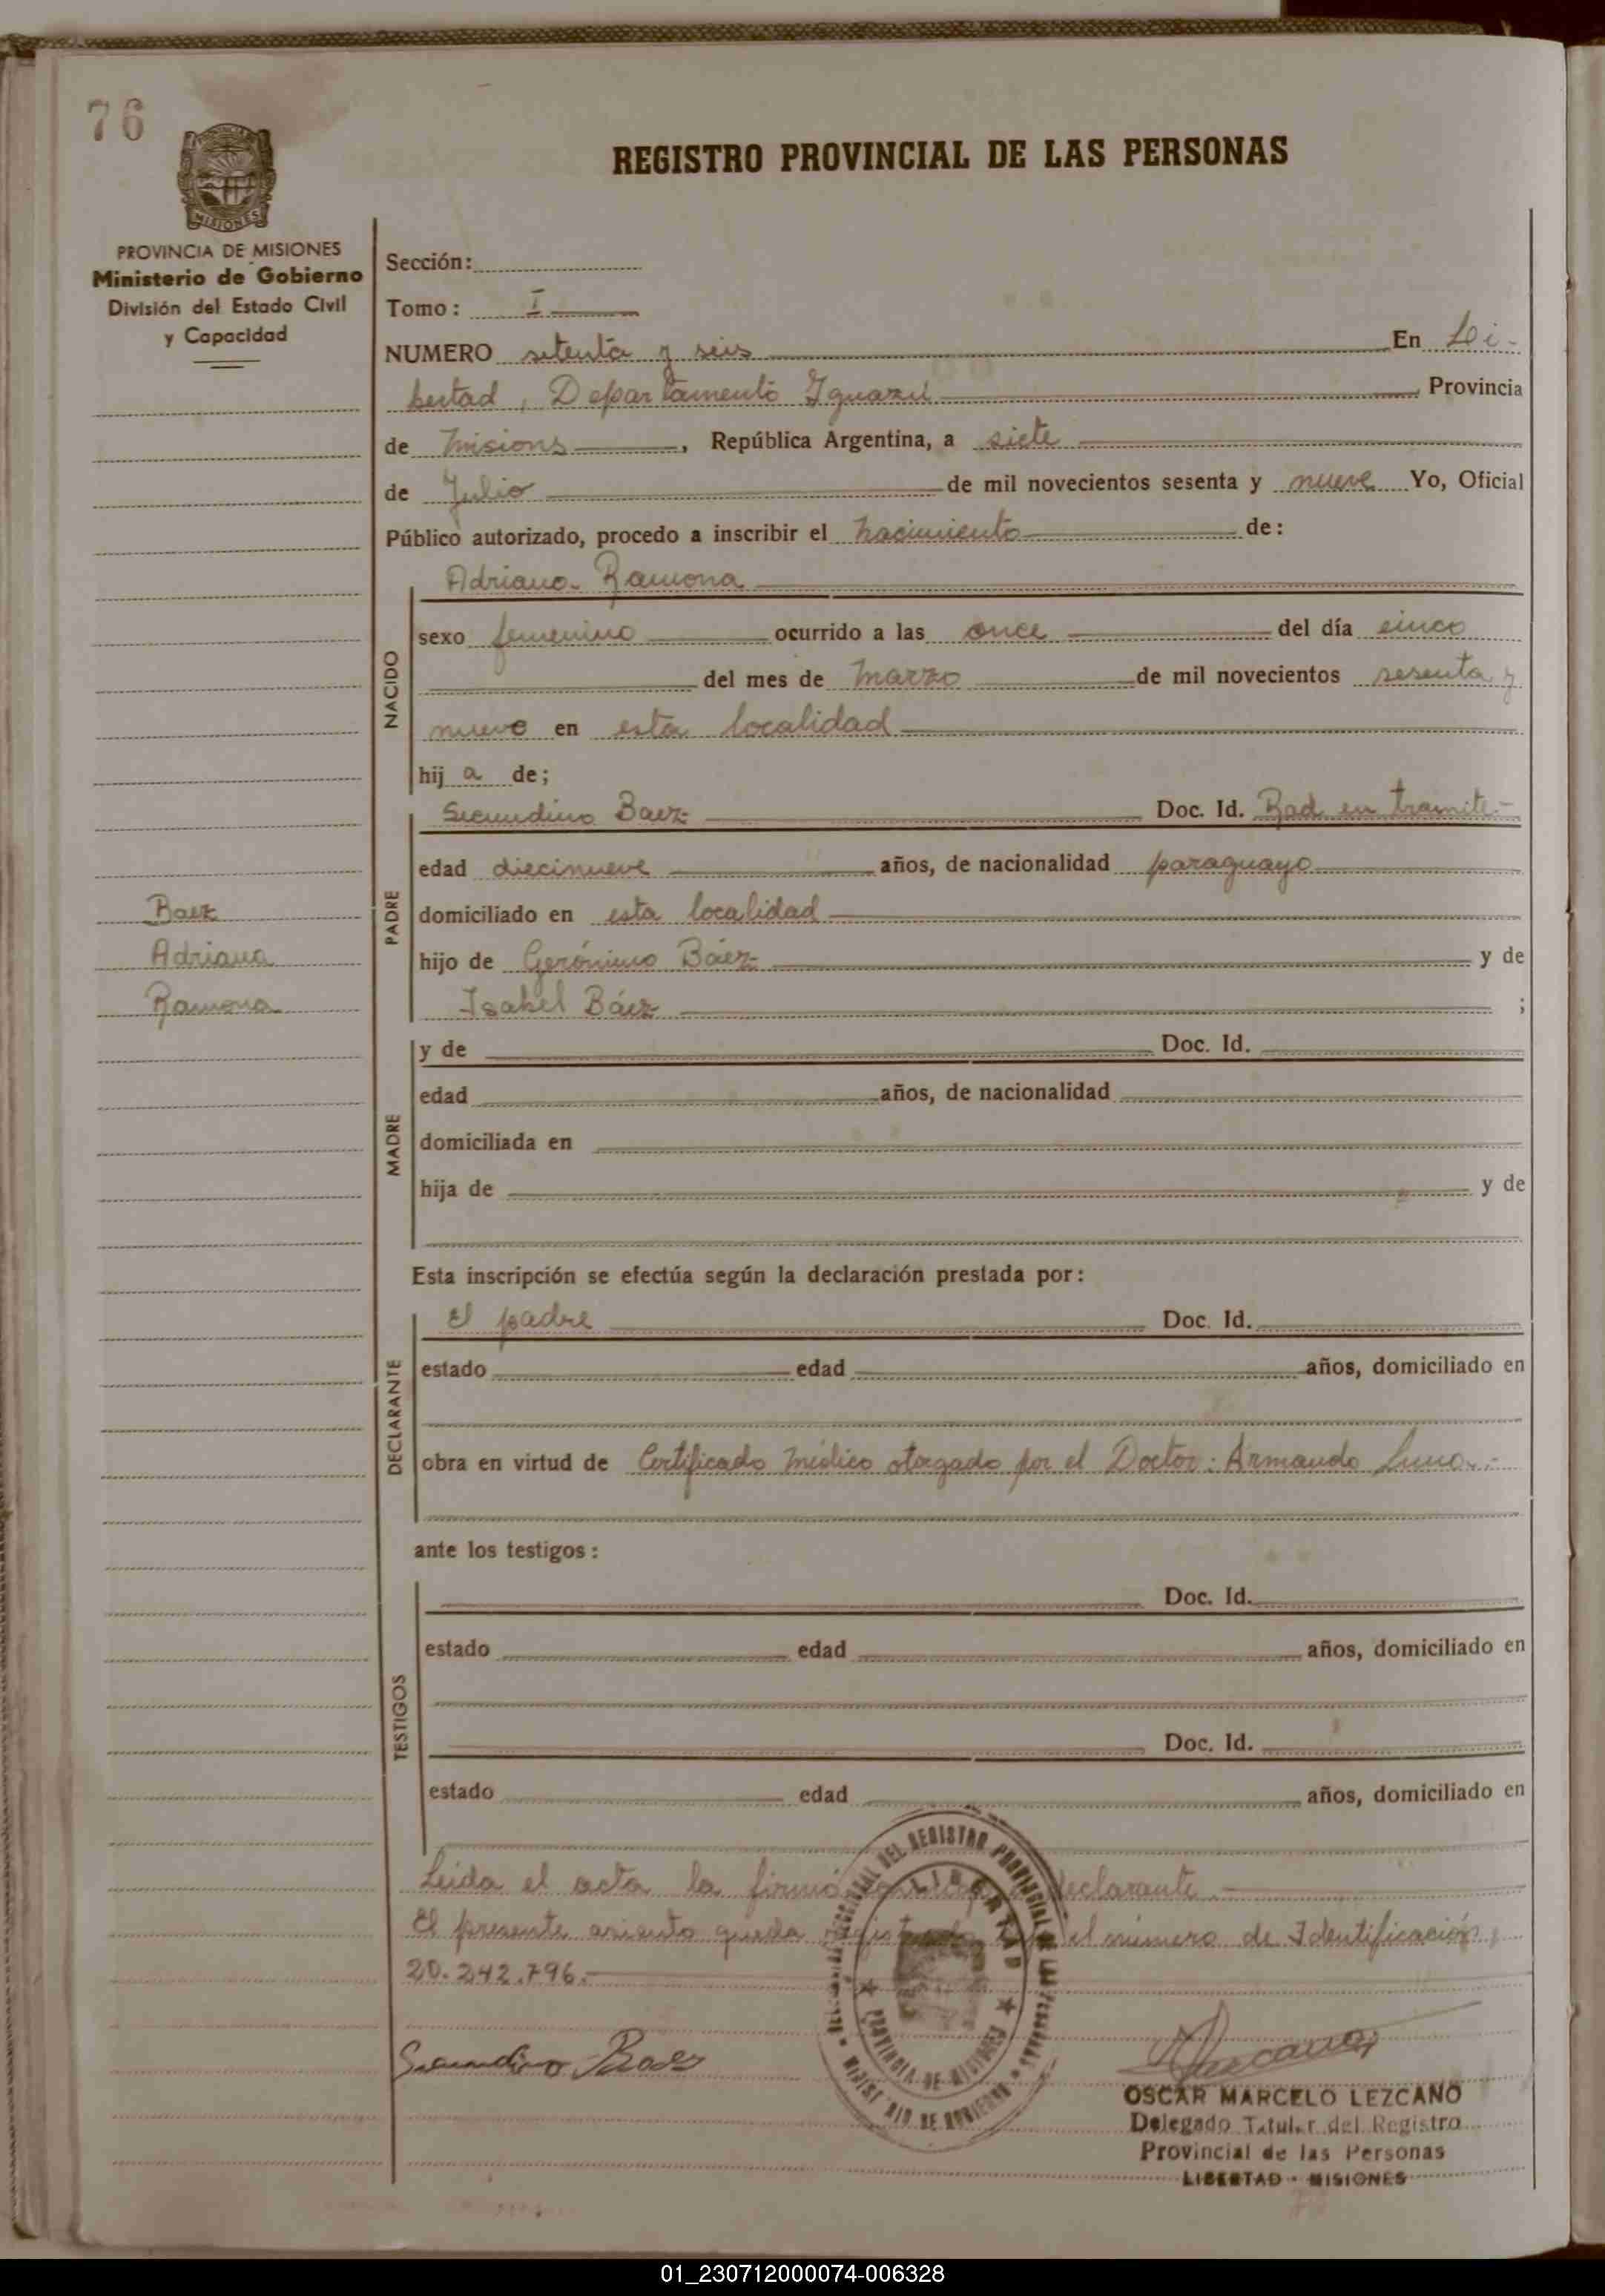 76
PROVINCIA DE MISIONES
Ministerio de Gobierno
División del Estado Civil
y Capacidad
REGISTRO PROVINCIAL DE LAS PERSONAS
Sección:
Tomo: I
NUMERO setenta y seis En Li-
bertad, Departamento Iguazú Provincia
de Misions, República Argentina, a siete
de Julio de mil novecientos sesenta y nueve Yo, Oficial
Público autorizado, procedo a inscribir el nacimiento de:
NACIDO
Adriana Ramona
sexo femenino ocurrido a las once del día cinco
del mes de Marzo de mil novecientos sesenta y
nueve en esta localidad
hij a de;
PADRE
Secundino Baez Doc. Id. Rad en tramite.-
edad diecinueve años, de nacionalidad paraguayo
domiciliado en esta localidad
hijo de Gerónimo Báez y de
Isabel Báez ;
Baez
Adriana
Ramona
MADRE
y de Doc. Id.
edad años, de nacionalidad
domiciliada en
hija de y de
Esta inscripción se efectúa según la declaración prestada por:
DECLARANTE
El padre Doc. Id.
estado edad años, domiciliado en
obra en virtud de Certificado Médico otorgado por el Doctor: Armando Luna.-
ante los testigos:
TESTIGOS
Doc. Id.
estado edad años, domiciliado en
Doc. Id.
estado edad años, domiciliado en
Leida el acta la firmó declarante
El presente asiento queda el número de Identificación,
20.242.796.-
Secundino Baez
LIBERTAD
PROVINCIA DE MISIONES
OSCAR MARCELO LEZCANO
Delegado Titular del Registro
Provincial de las Personas
LIBERTAD - MISIONES
01_230712000074-006328